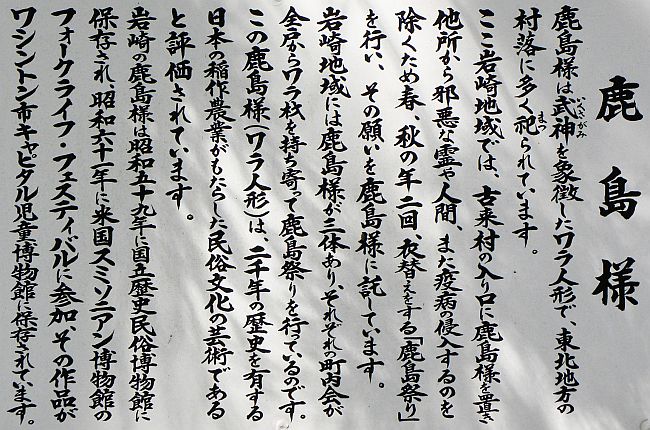 鹿島様
鹿島様は武神を象徴したワラ人形で、東北地方の
いくさがみ
村落に多く祀られています。
まつ
ここ岩崎地域では、古来村の入り口に鹿島様を置き
他所から邪悪な霊や人間、また疫病の侵入するのを
除くため春、秋の年二回、衣替えをする「鹿島祭り」
を行い、その願いを鹿島様に託しています。
岩崎地域には鹿島様が三体あり、それぞれの町内会が
全戸からワラ杁を持ち寄って鹿島祭りを行っているのです。
この鹿島様(ワラ人形)は、二千年の歴史を有する
日本の稲作農業がもたらした民俗文化の芸術である
と評価されています。
岩崎の鹿島様は昭和五十九年に国立歴史民俗博物館に
保存され、昭和六十一年に米国スミソニアン博物館の
フォークライフ・フェスティバルに参加、その作品が
ワシントン市キャピタル児童博物館に保存されています。